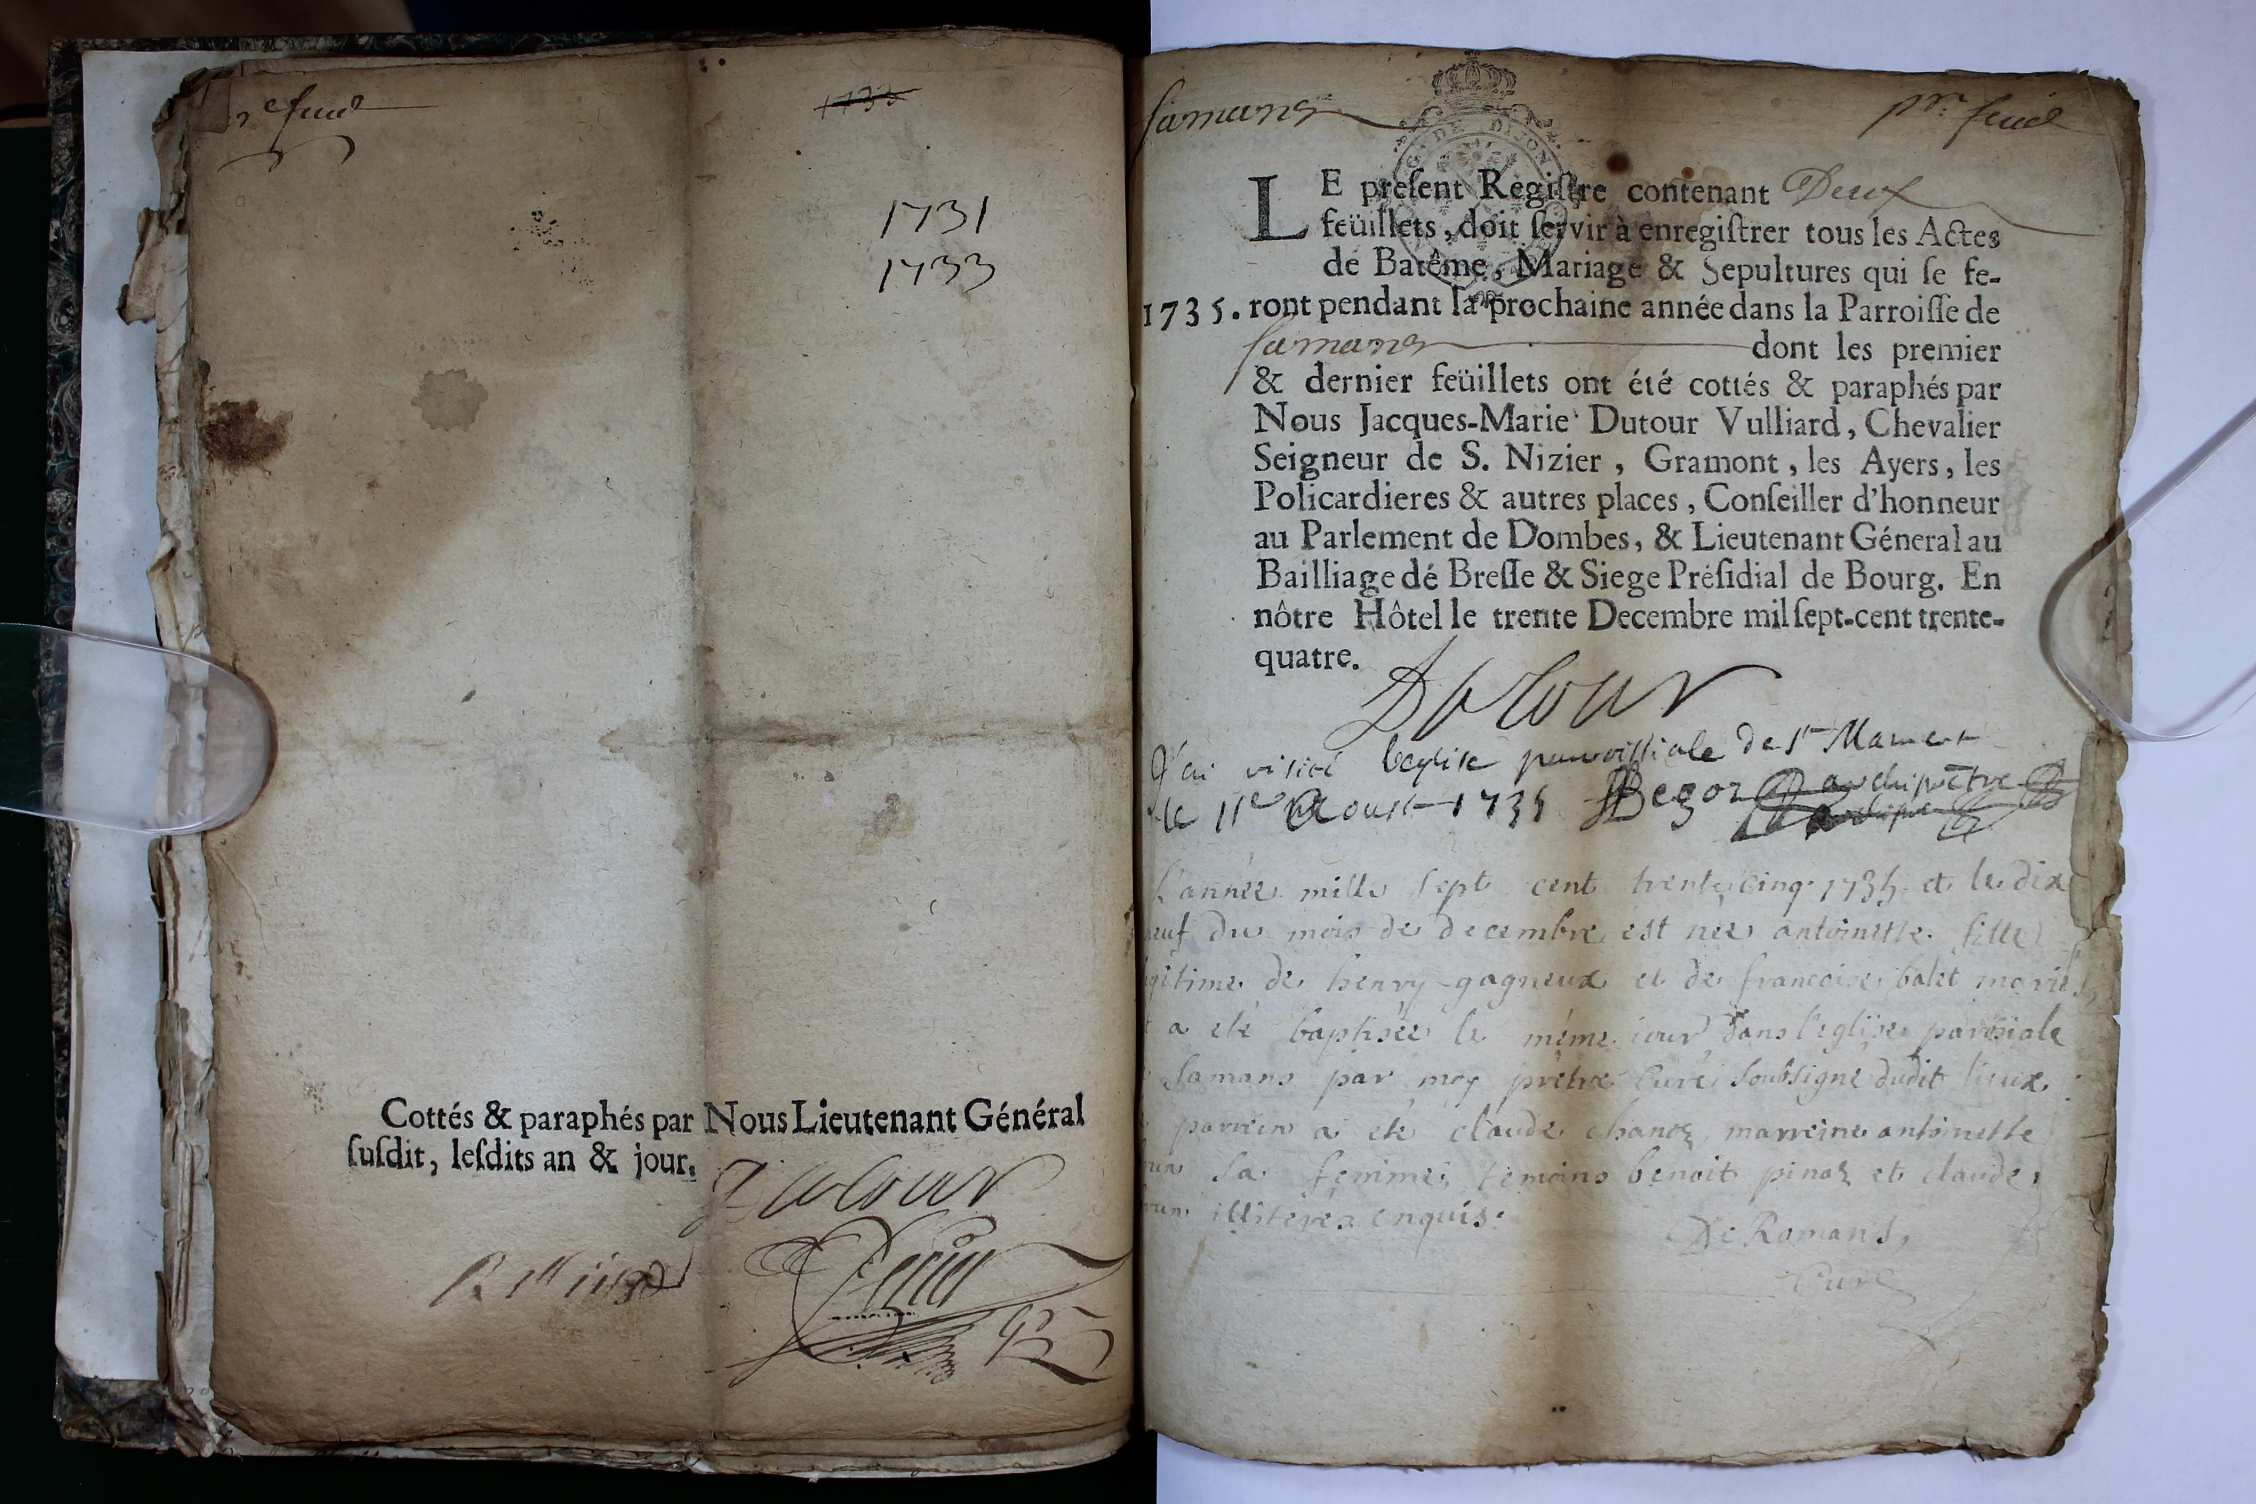 2e feuil
1733
1731
1733
Cottés & paraphés par Nous Lieutenant Général
ſuſdit, leſdits an & jour.
Dutour
Samans
pr. feuil
G. DE DIJON
LE preſent Regiſtre contenant Deux
feüillets, doit ſervir à enregiſtrer tous les Actes
de Batême, Mariage & Sepultures qui ſe fe-
1735. ront pendant la prochaine année dans la Parroiſſe de
Samans dont les premier
& dernier feüillets ont été cottés & paraphés par
Nous Jacques-Marie Dutour Vulliard, Chevalier
Seigneur de S. Nizier, Gramont, les Ayers, les
Policardieres & autres places, Conſeiller d'honneur
au Parlement de Dombes, & Lieutenant Géneral au
Bailliage dé Breſſe & Siege Préſidial de Bourg. En
nôtre Hôtel le trente Decembre mil ſept-cent trente-
quatre.
Dutour
J'ai visité l'eglise parroissiale de St Mamert
le 11e Aoust 1735 Begoz archiprêtre
L'année mille sept cent trente cinq 1735 et le dix
neuf du mois de decembre est née antoinette fille
gitime de henry gagneux et de francoise balet mariés
a eté baptisée le même iour dans l'eglise parosiale
Samans par moy prêtre Curé soubsigné dudit lieux
parrein a eté claude chanoz marreine antoinette
sa femme, temoins benoit pinoz et claude
illiteres enquis.
De Romans,
Curé